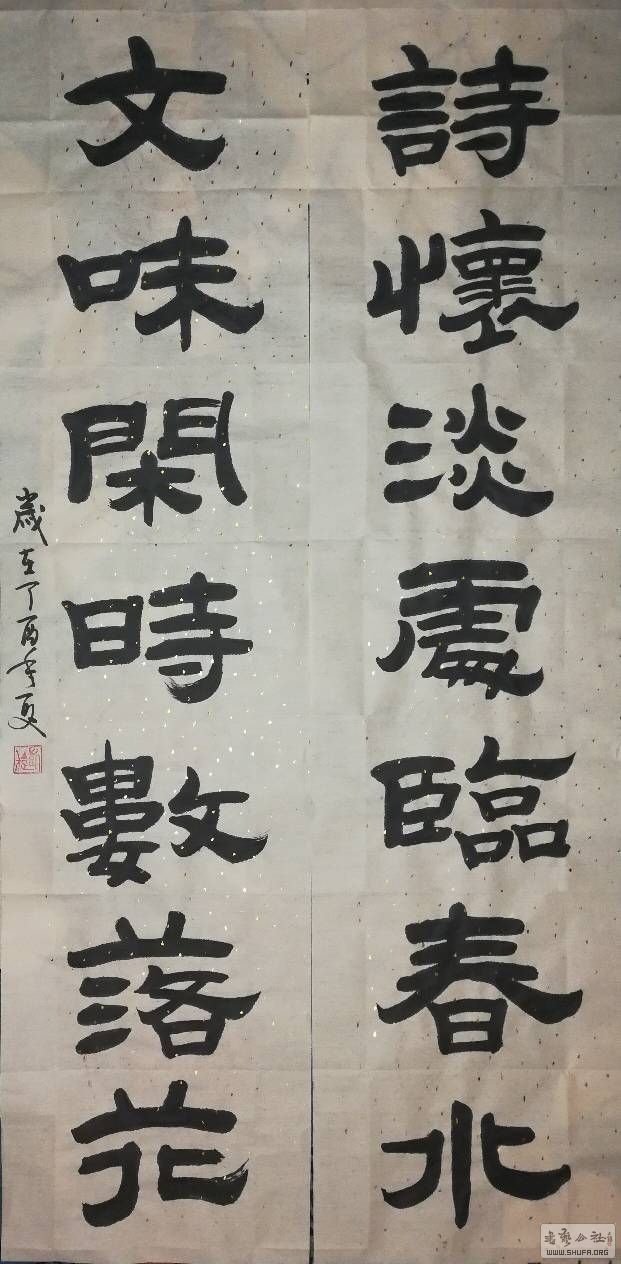 詩懷淡處臨春水
文味閑時數落花
歲在丁酉年夏
書藝公社
WWW.SHUFA.ORG